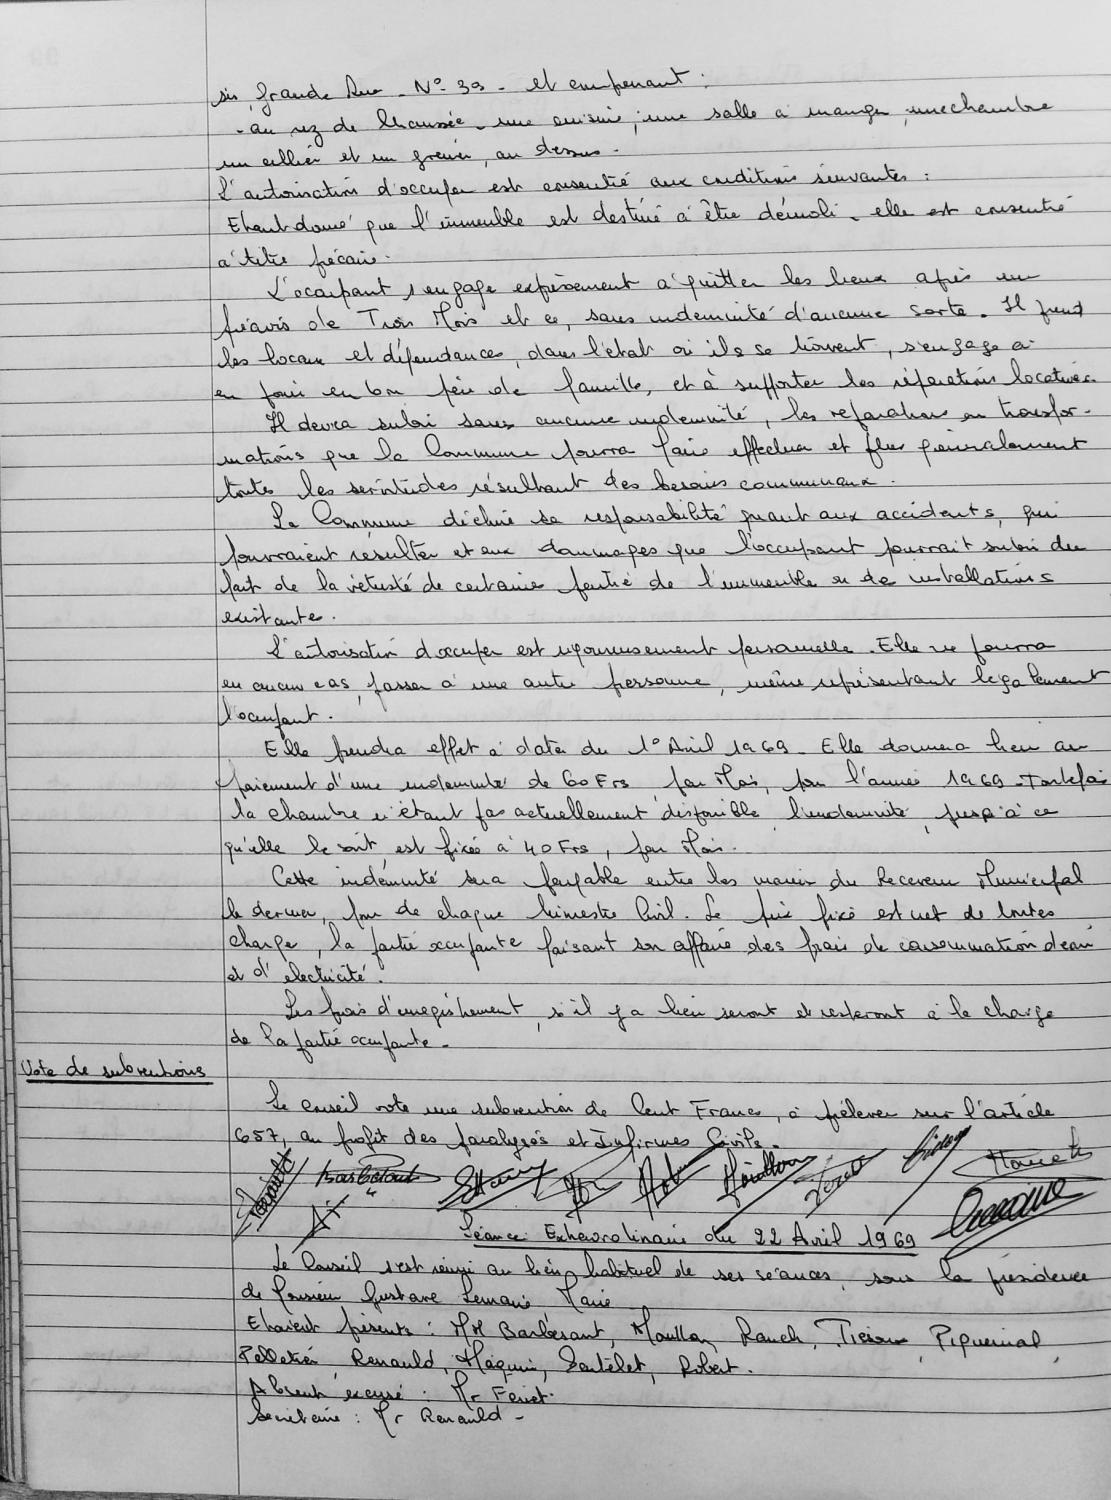 sis, Grande Rue - N° 39 - et comprenant :
- au rez de Chaussée - une cuisine, une salle à manger, une chambre
un cellier et un grenier, au dessus -
L'autorisation d'occuper est consentie aux conditions suivantes :
Etant donné que l'immeuble est destiné à être démoli - elle est consentie
à titre précaire.
L'occupant s'engage expressément à quitter les lieux après un
préavis de Trois Mois et ce, sans indemnité d'aucune sorte. Il prend
les locaux et dépendances, dans l'état où ils se trouvent, s'engage à
en jouir en bon père de famille, et à supporter les réparations locatives.
Il devra subir sans aucune indemnité, les réparations ou transfor-
mations que la Commune pourra faire effectuer et plus généralement
toutes les servitudes résultant des besoins communaux.
La Commune décline sa responsabilité quant aux accidents, qui
pourraient résulter et aux dommages que l'occupant pourrait subir du
fait de la vétusté de certaines partie de l'immeuble ou de installations
existante.
L'autorisation d'occuper est rigoureusement personnelle. Elle ne pourra
en aucun cas, passer à une autre personne, même représentant légalement
l'occupant.
Elle prendra effet à dater du 1° Avril 1969 - Elle donnera lieu au
paiement d'une indemnité de 60 Frs par Mois, pour l'année 1969 - Toutefois
la chambre n'étant pas actuellement disponible l'indemnité, jusqu'à ce
qu'elle le soit, est fixée à 40 Frs, par Mois.
Cette indemnité sera payable entre les mains du Receveur Municipal
le dernier jour de chaque trimestre Civil. Le prix fixé est net de toutes
charge, la partie occupante faisant son affaire des frais de consommation d'eau
et d'électricité.
Les frais d'enregistrement, s'il y a lieu seront et resteront à la charge
de la partie occupante -
Vote de subventions
Le Conseil vote une subvention de Cent Francs, à prélever sur l'article
657, au profit des paralysés et Infirmes Civils -
Barbesant
Séance Extraordinaire du 22 Avril 1969
Le Conseil s'est réuni au lieu habituel de ses séances, sous la présidence
de Monsieur Gustave Lemaire, Maire
Etaient présents : MM Barbesant, Moullon, Rauch, Piquernal,
Pelletier Renauld, Robert.
Absent excusé : Mr Feriet.
Secrétaire : Mr Renauld -